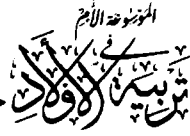 الموسوعة الأم
في
تربية الأولاد